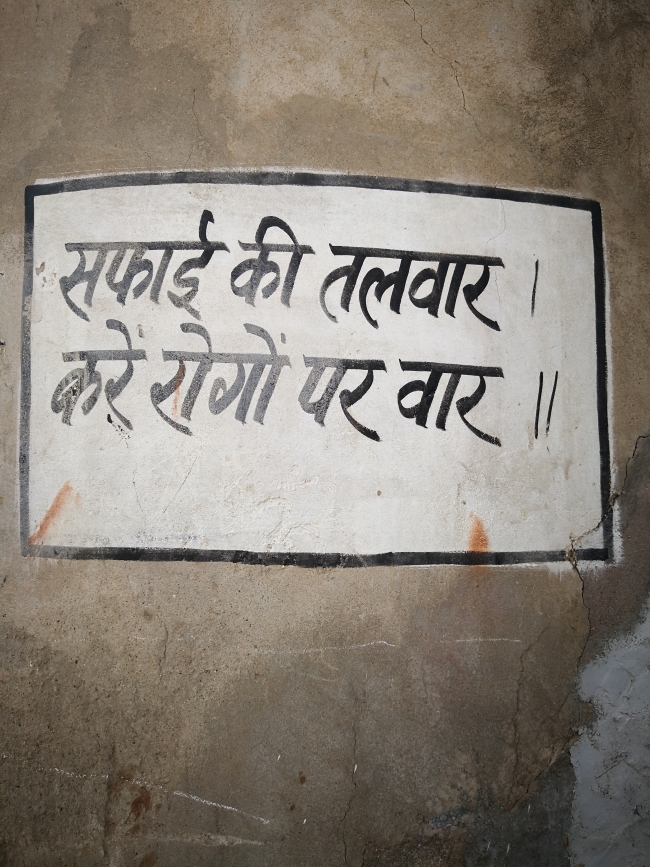 सफाई की तलवार ।
करें रोगों पर वार ॥